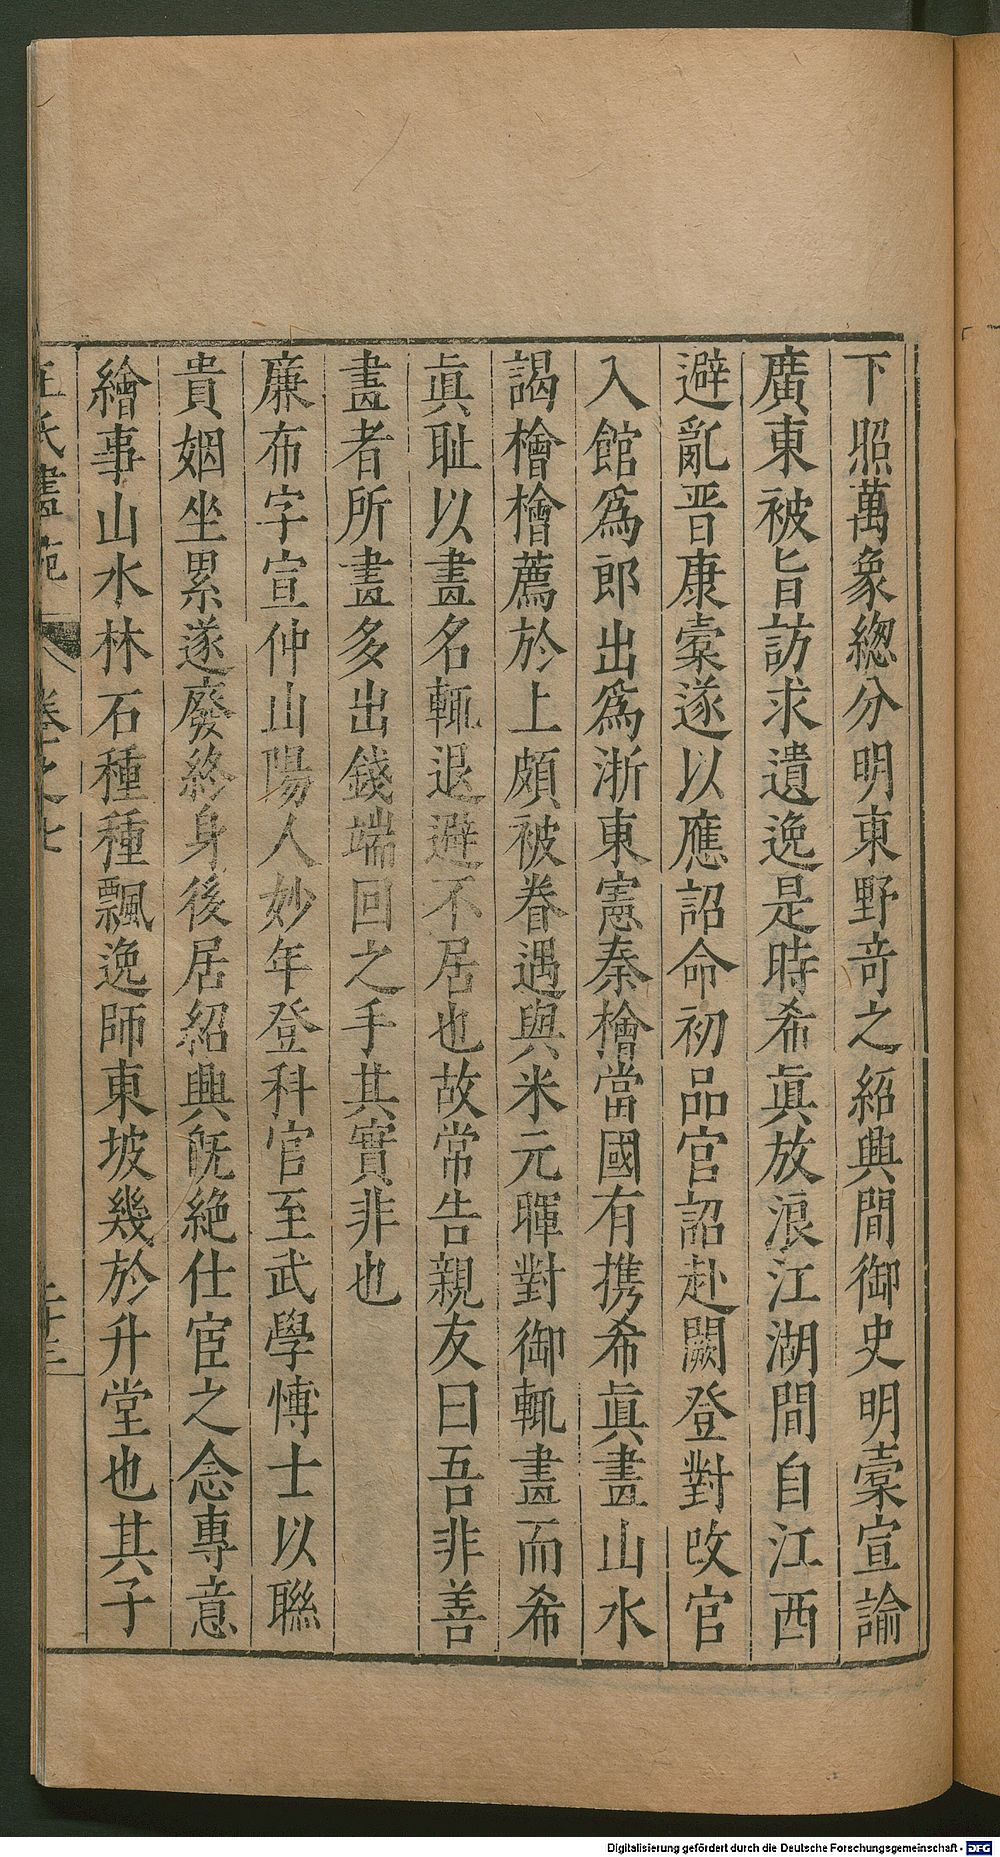 下照萬象緫分明東野竒之紹興間御史明橐宣諭
廣東被旨訪求遺逸是時希眞放浪江湖間自江西
避亂晋康橐遂以應詔命初品官詔赴闕登對改官
入館爲郎出爲浙東憲秦檜當國有携希眞畫山水
謁檜檜薦於上頗被眷遇與米元暉對御輒畫而希
眞耻以畫名輒退避不居也故常告親友曰吾非善
畫者所畫多出錢端回之手其實非也
廉布字宣仲山陽人妙年登科官至武學愽士以聯
貴姻坐累遂廢終身後居紹興旣絶仕宦之念專意
繪事山水林石種種飄逸師東坡幾於升堂也其子
王氏畫苑 卷之七 二十三
Digitalisierung gefördert durch die Deutsche Forschungsgemeinschaft - DFG